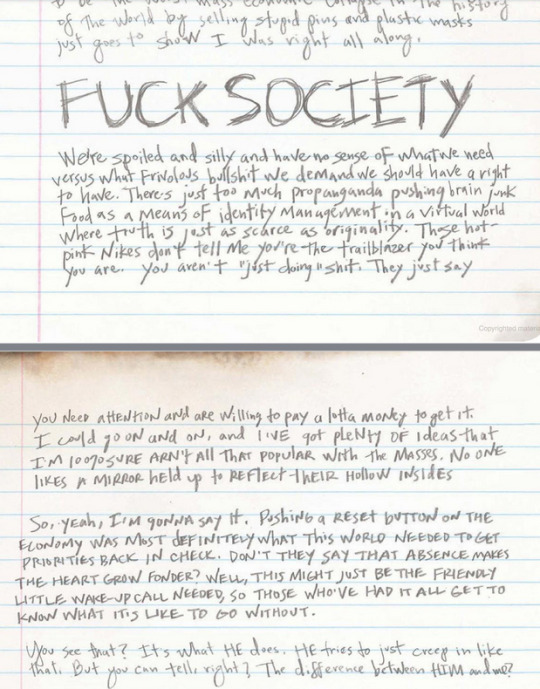 to be the worst mass economic collapse in the history
of the world by selling stupid pins and plastic masks
just goes to show I was right all along.
FUCK SOCIETY
We're spoiled and silly and have no sense of what we need
versus what frivolous bullshit we demand we should have a right
to have. There's just too much propanganda pushing brain junk
food as a means of identity management in a virtual world
where truth is just as scarce as originality. Those hot-
pink Nikes don't tell me you're the trailblazer you think
you are. You aren't "just doing" shit. They just say
Copyrighted material
you NEED ATTENTION and are willing to pay a lotta money to get it.
I could go on and on, and I'VE got plENTY OF ideas that
I'M 100% SURE ARN't All THAT POPULAR WITH the MASSES. NO ONE
likes A MIRROR held up to REFLECT THEIR HOLLOW INSIDES
So, yeah, I'M GONNA SAY IT. PUSHING A RESET BUTTON ON THE
ECONOMY WAS MOST DEFINITELY WHAT THIS WORLD NEEDED TO GET
PRIORITIES BACK IN CHECK. DON'T THEY SAY THAT ABSENCE MAKES
THE HEART GROW FONDER? WELL, THIS MIGHT JUST BE THE FRIENDLY
LITTLE WAKE-UP CALL NEEDED, SO THOSE WHO'VE HAD IT ALL GET TO
KNOW WHAT IT'S LIKE TO GO WITHOUT.
You see that? It's what HE does. HE tries to just creep in like
that. But you can tell, right? The difference between HIM and me?